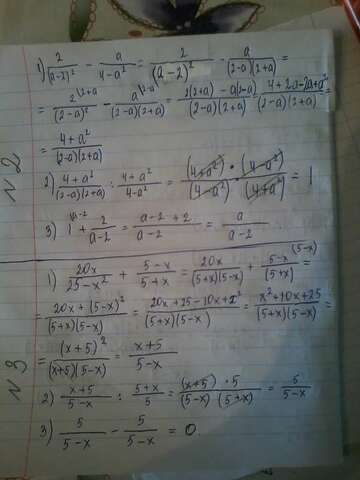 1) 2/(a-2)² - a/(4-a²) = 2/(2-2)² - a/((2-a)(2+a)) =
= 2^(2+a)/(2-a)² - a^(2-a)/((2-a)(2+a)) = (2(2+a) - a(2-a))/((2-a)(2+a)) = (4+2a-2a+a²)/((2-a)(2+a)) =
= (4+a²)/((2-a)(2+a))
N2
2) (4+a²)/((2-a)(2+a)) : (4+a²)/(4-a²) = ((4+a²)·(4-a²))/((4-a²)·(4+a²)) = 1
3) 1^(a-2) + 2/(a-2) = (a-2+2)/(a-2) = a/(a-2)
1) 20x/(25-x²) + (5-x)/(5+x) = 20x/((5+x)(5-x)) + (5-x)^(5-x)/(5+x) =
= (20x+(5-x)²)/((5+x)(5-x)) = (20x+25-10x+x²)/((5+x)(5-x)) = (x²+10x+25)/((5+x)(5-x)) =
= (x+5)²/((x+5)(5-x)) = (x+5)/(5-x)
N3
2) (x+5)/(5-x) : (5+x)/5 = ((x+5)·5)/((5-x)(5+x)) = 5/(5-x)
3) 5/(5-x) - 5/(5-x) = 0